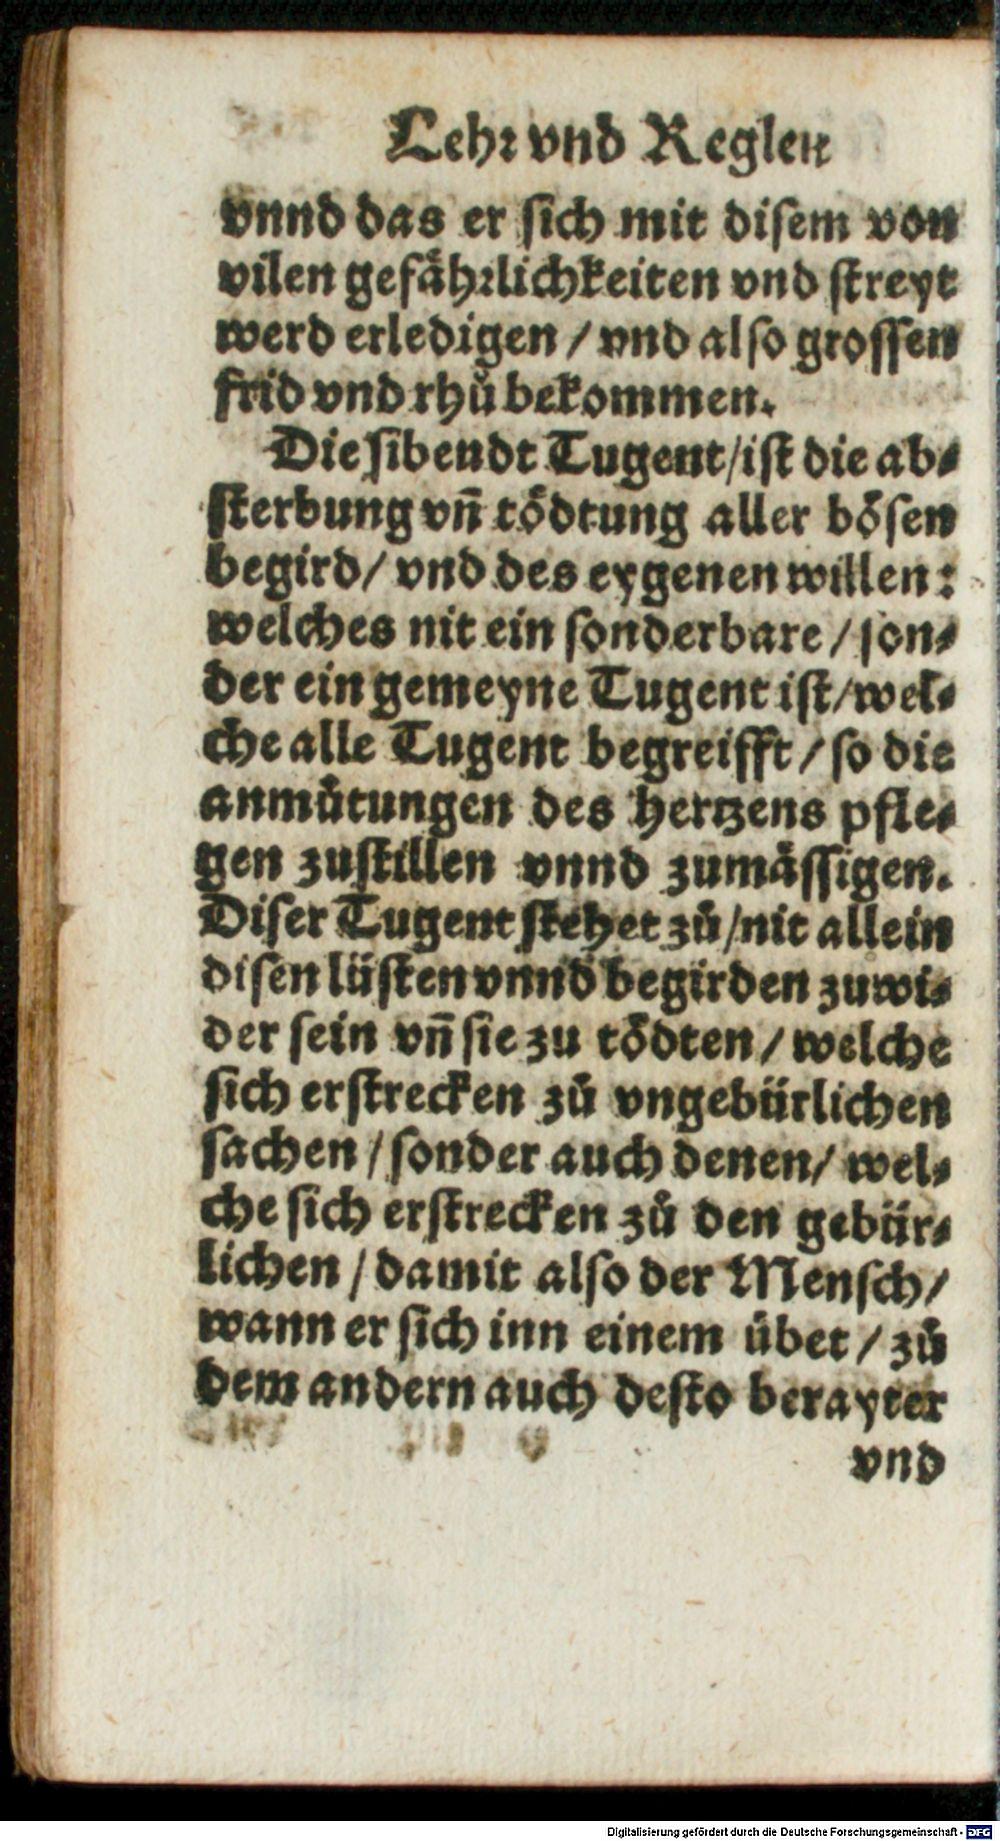 Lehr vnd Reglen
vnnd das er sich mit disem von
vilen gefåhrlichkeiten vnd streyt
werd erledigen / vnd also grossen
frid vnd rhů bekommen.
Die sibendt Tugent / ist die ab⸗
sterbung vn̄ tödtung aller bösen
begird / vnd des eygenen willen:
welches nit ein sonderbare / son⸗
der ein gemeyne Tugent ist / wel⸗
che alle Tugent begreifft / so die
anmůtungen des hertzens pfle⸗
gen zustillen vnnd zumåssigen.
Diser Tugent stehet zů / nit allein
disen lüsten vnnd begirden zuwi⸗
der sein vn̄ sie zu tödten / welche
sich erstrecken zů vngebürlichen
sachen / sonder auch denen / wel⸗
che sich erstrecken zů den gebür⸗
lichen / damit also der Mensch /
wann er sich inn einem übet / zů
dem andern auch desto berayter
vnd
Digitalisierung gefördert durch die Deutsche Forschungsgemeinschaft - DFG